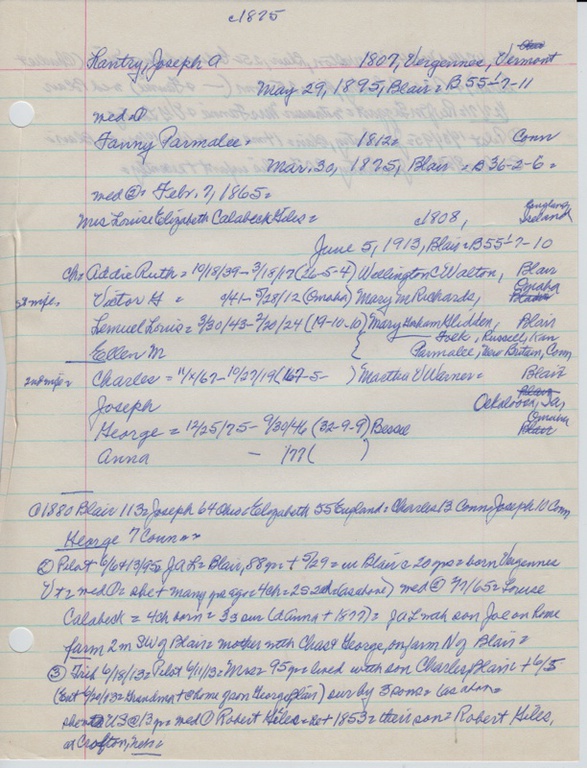 c1875
Lantry, Joseph A 1807, Vergennes, Vermont
May 29, 1895, Blair = B55-7-11
med ①
Fanny Parmalee = 1812 = Conn
Mar. 30, 1875, Blair = B36-2-6 =
med ② = Febr. 7, 1865 =
England,
Mrs Louise Elizabeth Calabeck Giles = c1808, Iseland
June 5, 1913, Blair = B55-7-10
ch = Addie Ruth = 10/18/39 - 3/18/17 (26-5-4) Wellington C Walton, Blair
Omaha
1st wife = Victor H = 9/41 - 5/28/12 (Omaha) Mary M Richards, Blair
Lemuel Louis = 3/30/43 - 2/20/24 (19-10-10) Mary Graham Glidden, Blair
Russell, Kan
Ellen M Parmalee, New Britain, Conn
2nd wife = Charles = 11/x/67 - 10/27/19 (167-5- ) Martha V Werner = Blair
Blair
Joseph Oskaloosa, Ia,
Omaha
George = 12/25/75 - 9/30/46 (32-9-9) Bessie Blair
Anna - /77 ( )
① 1880 Blair 113 = Joseph 64 Ohio = Elizabeth 55 England = Charles 13 Conn Joseph 10 Conn
George 7 Conn =
② Pilot 6/6 + 13/95 J A L = Blair, 88 yrs + 5/29 = in Blair c 20 yrs = born Vergennes
Vt = med ① = she + many yrs ago = 4 ch = 2s 2d = (as above) med ② 2/7/65 = Louise
Calabeck = 4 ch born = 3s sur (d Anna + 1877) = J A L with son Joe on home
farm 2m SW of Blair = mother with Chas & George, on farm N of Blair =
③ Trib 6/18/13 = Pilot 6/11/13 = Mrs = 95 yr = lived with son Charles Blair + 6/5
(Ent 6/20/13 = Grandma + @ home of son George Blair) sur by 3 sons = (as above =
she to US @ 13 yr = med ① Robert Giles = he + 1853 = their son = Robert Giles,
at Crofton, Neb =